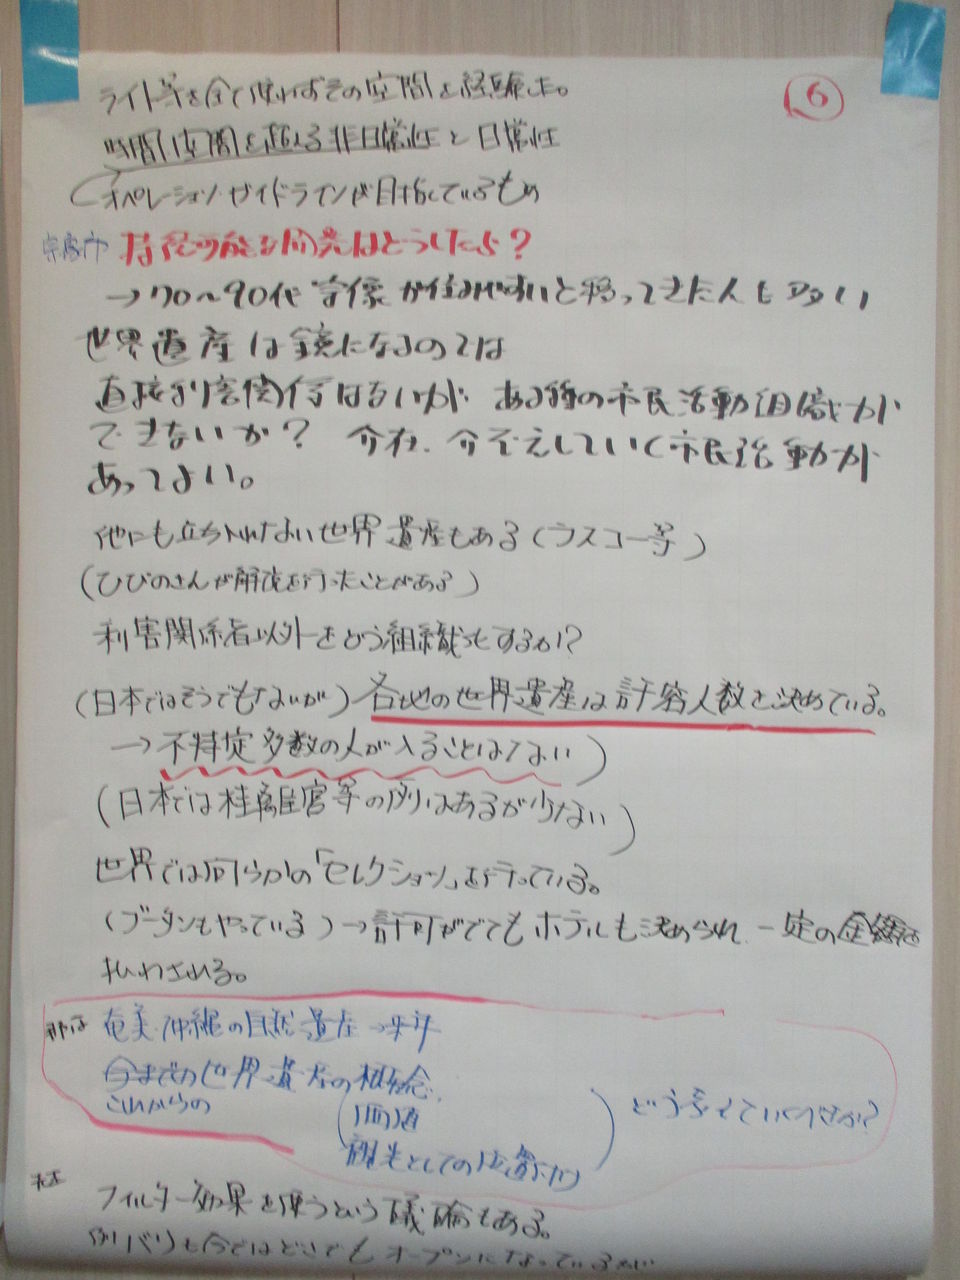 6
ライト等を全て使わずその空間を経験した。
時間、空間を超える非日常性と日常性
オペレーション・ガイドラインが目指しているもの
宗像市 持続可能な観光はどうしたら?
→70〜90代 宗像が住みやすいと移ってきた人も多い
世界遺産は鏡になるのでは
直接利害関係はないが ある種の市民活動組織が
できないか? 介在、介添えしていく市民活動が
あってよい。
他にも立ち入れない世界遺産もある(ラスコー等)
(ひびのさんが解説を行ったことがある)
利害関係者以外をどう組織化するか!?
(日本ではそうでもないが)各地の世界遺産は許容人数を決めている。
→不特定多数の人が入ることはない)
(日本では桂離宮等の例はあるが少ない)
世界では何らかの「セレクション」を行っている。
(ブータンもやっている)→許可がでてもホテルも決められ、一定の金額を
払わされる。
奄美・沖縄の自然遺産→
今までの世界遺産の概念
これからの
価値
観光としての位置づけ
どう考えていくべきか?
フィルター効果を使うという議論もある。
今ではどこでもオープンになっているが